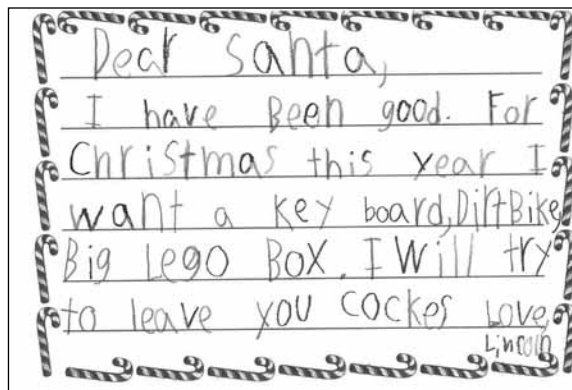 Dear Santa,
I have Been good. For
Christmas this year I
want a key board, Dirt Bike,
Big Lego Box. I Will try
to leave you cockes Love,
Lincoln